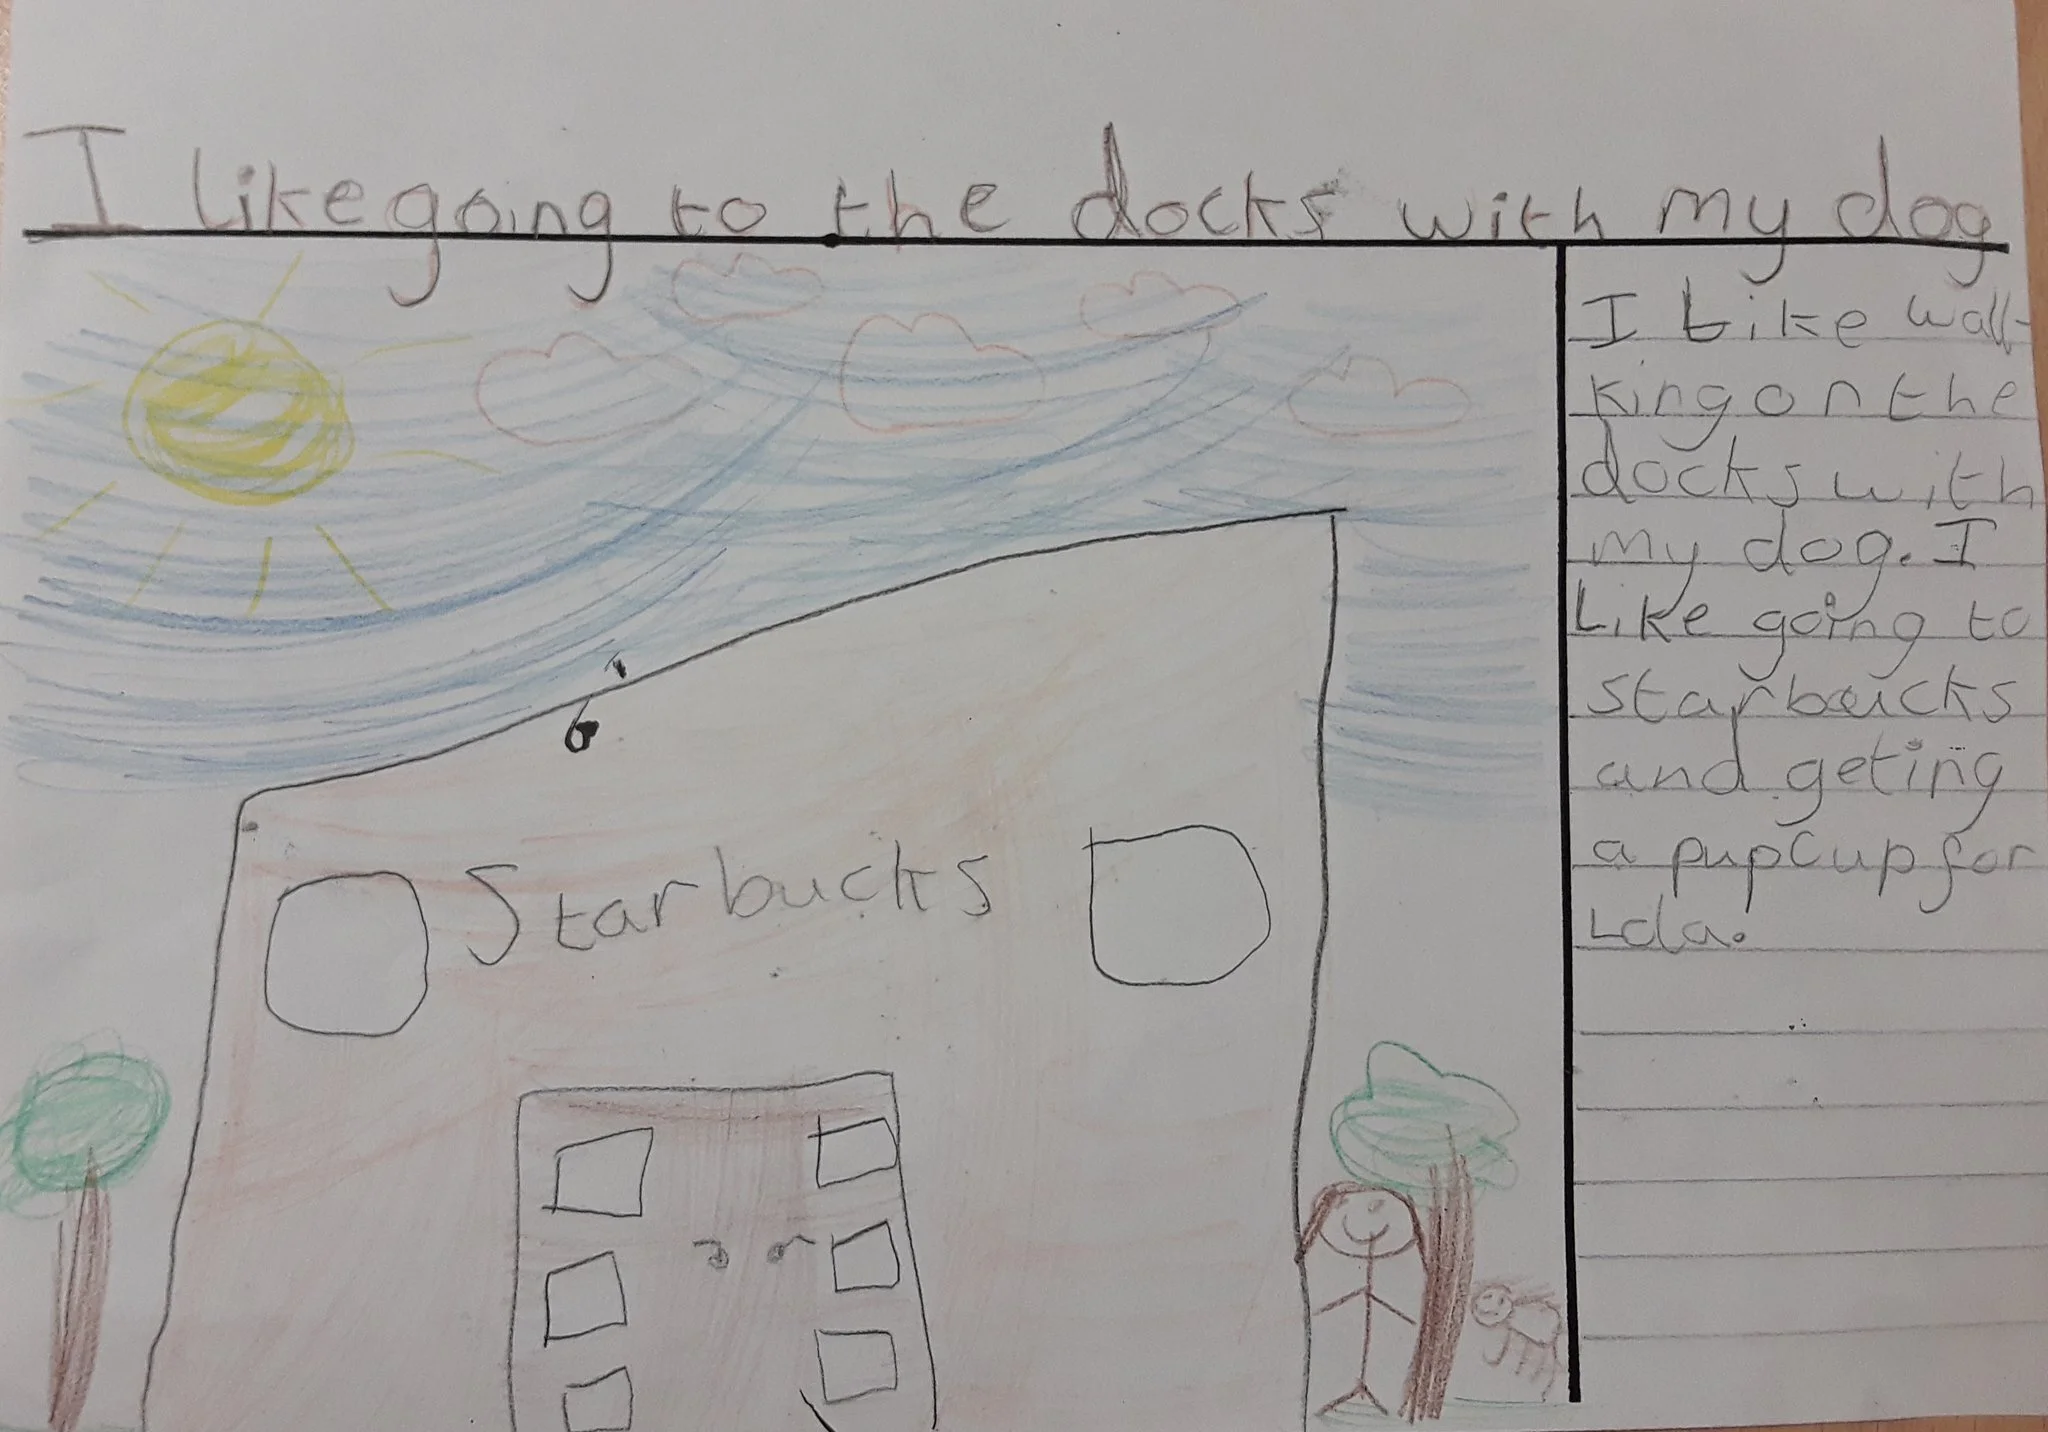 I like going to the docks with my dog
Starbucks
I Like wall-
king on the
docks with
my dog. I
Like going to
starbucks
and geting
a pupCup for
Lola.